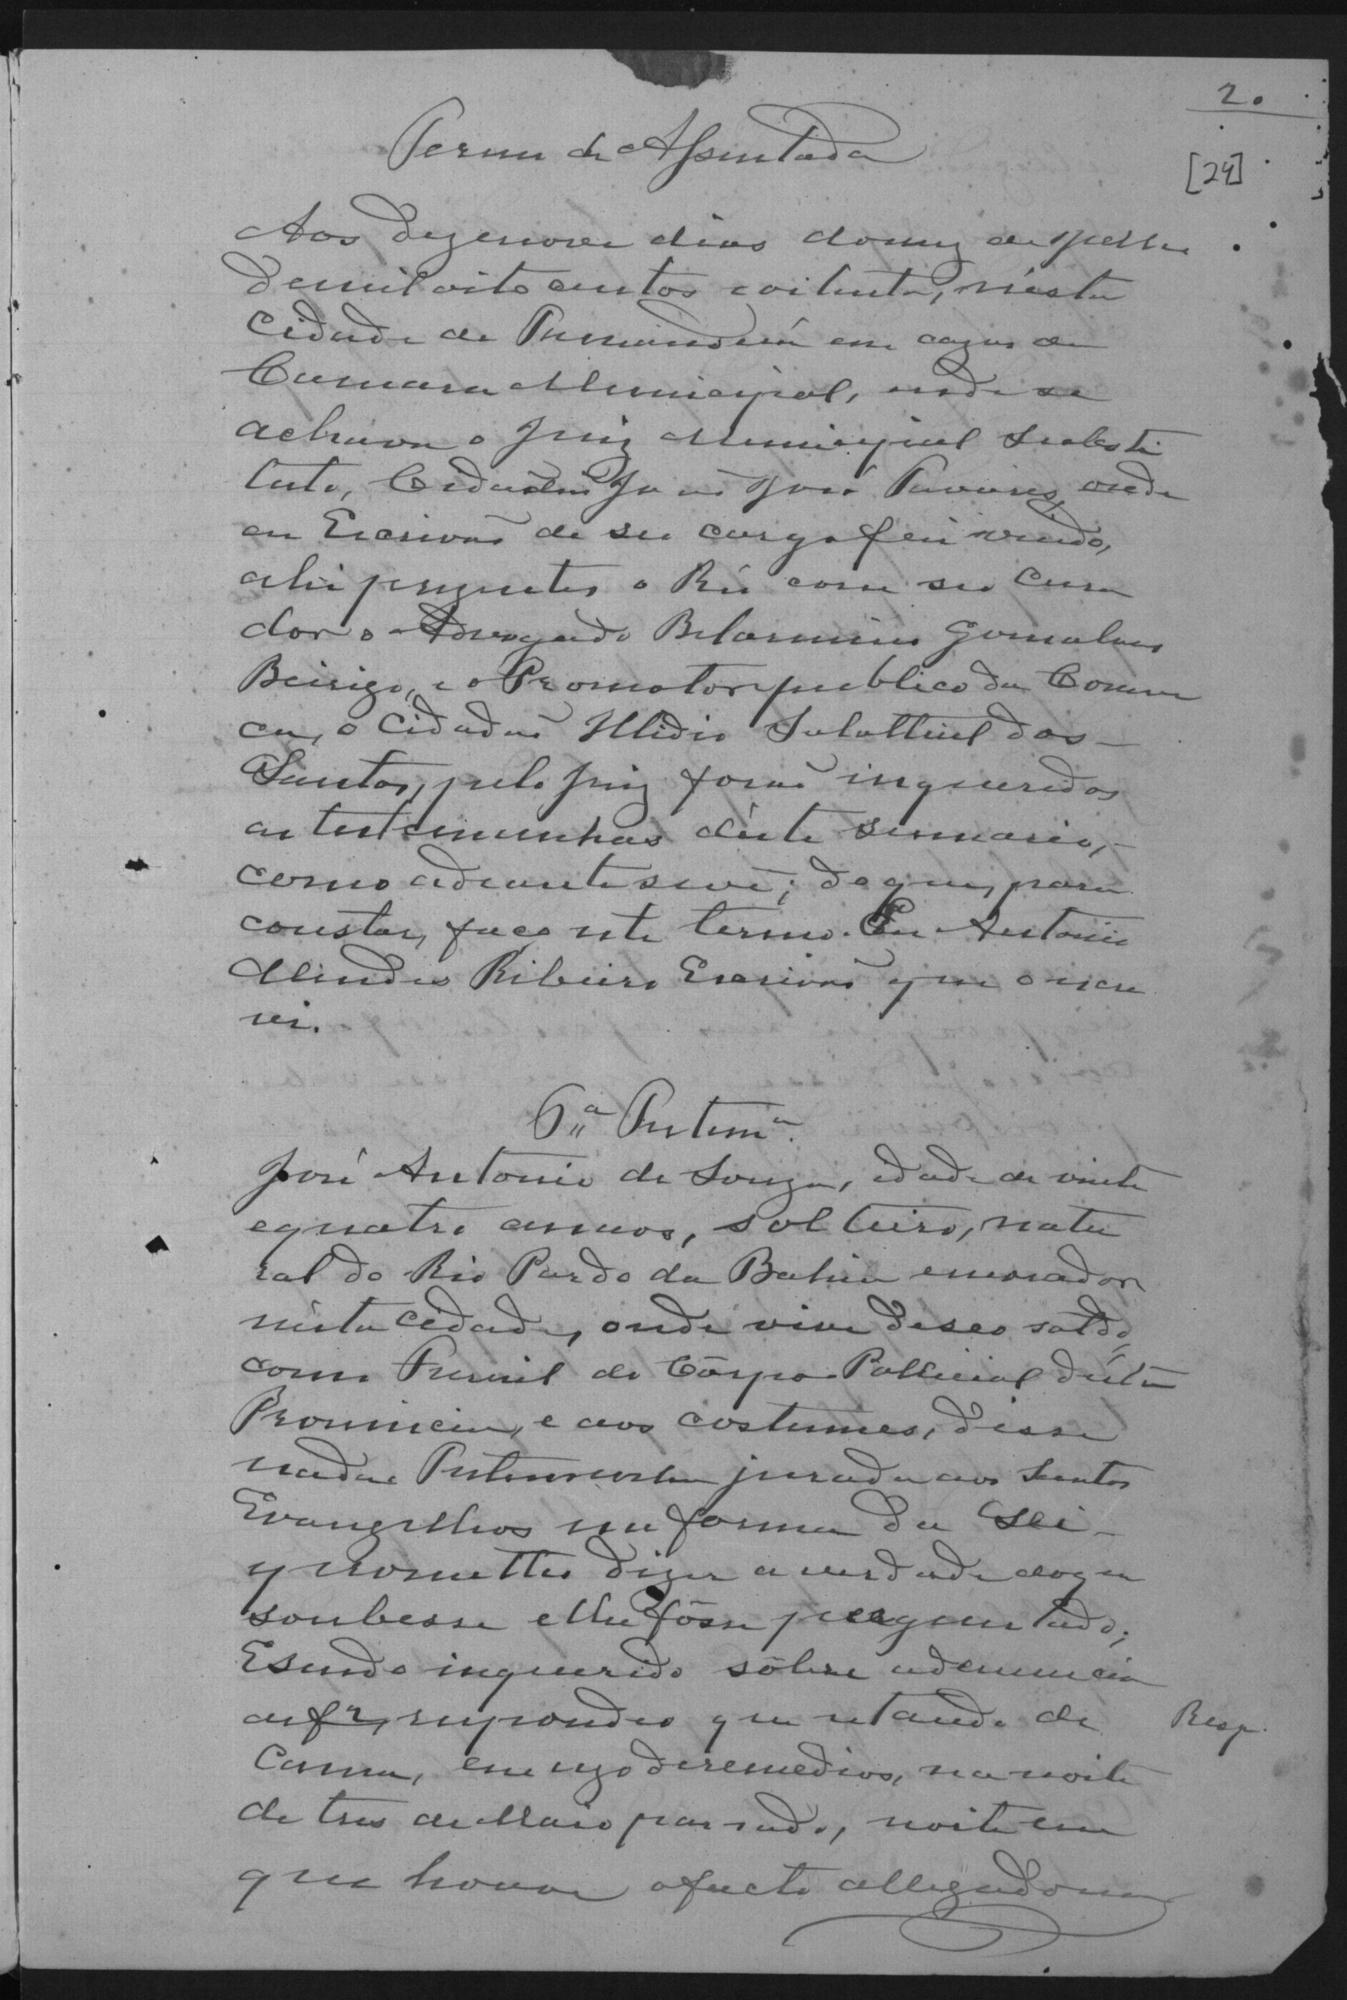 2.
[24]
Termo de Assentada
Aos dezenove dias do mez de
de mil oito centos e oitenta, n'ésta
Cidade de em cazas da
Camara Municipal, onde se
achava o Juiz Municipal Substi
tuto, Cidadão João José Tavares, onde
eu Escrivão de seu cargo fui vindo,
ahi prezentes o Réo com seu Cura
dor o Advogado Belarmino Gonsalves
Beirigo, e o Promotor publico da Comar
ca, o Cidadão Illidio Salathiel dos
Santos, pelo Juiz forão inqueridas
as testemunhas d'éste summario,
como adeante se vê; do que, para
constar, faço este termo. Eu Antonio
Mendes Ribeiro Escrivão que o escre
vi.
6ª Testemª
José Antonio de Souza, idade de vinte
e quatro annos, solteiro, natu
ral do Rio Pardo da Bahia e morador
n'ésta cidade, onde vive de seo soldo,
como do Côrpo Pollicial d'ésta
Provincia, e aos costumes, disse
nada. Testemunha jurada aos Santos
Evangelhos na forma da Lei
prometteo dizer a verdade do que
soubesse e lhe fôsse perguntado;
E sendo inquerido sôbre a denuncia
de f 2, respondeo que estando de Resp.
cama, em uzo de remedios, na noite
de tres de Maio passado, noite em
que houve o facto allegado na